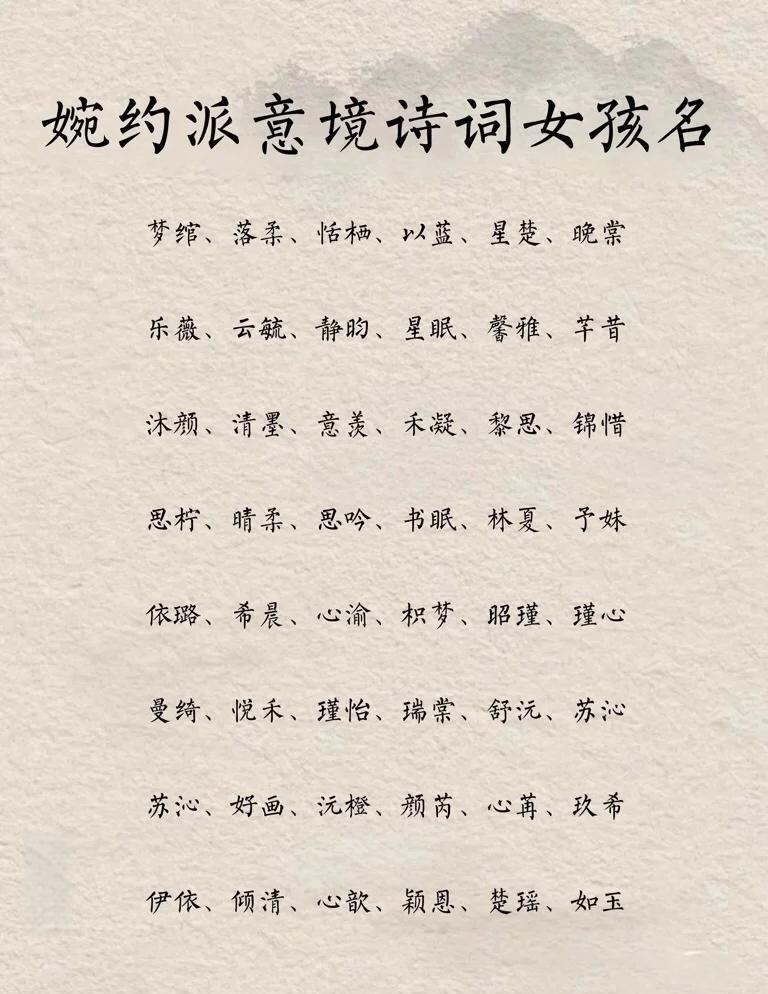 婉约派意境诗词女孩名
梦绾、落柔、恬栖、以蓝、星楚、晚棠
乐薇、云毓、静昀、星眠、馨雅、芊昔
沐颜、清墨、意羡、禾凝、黎思、锦惜
思柠、晴柔、思吟、书眠、林夏、予妹
依璐、希晨、心渝、枳梦、昭瑾、瑾心
曼绮、悦禾、瑾怡、瑞棠、舒沅、苏沁
苏沁、好画、沅橙、颜芮、心苒、玖希
伊依、倾清、心歆、颖恩、楚瑶、如玉